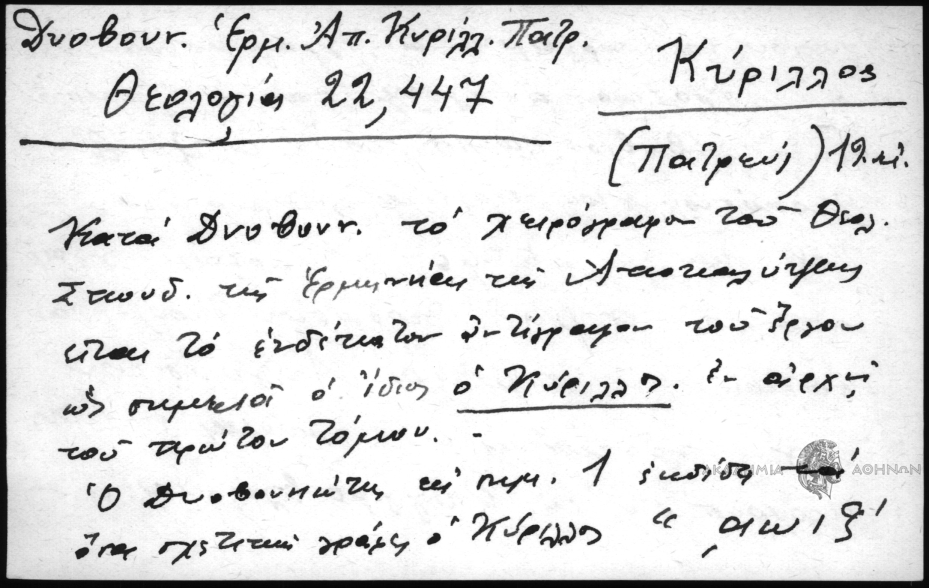 Δυοβουν. Ἑρμ. Ἀπ. Κυρίλλ. Πατρ.
Θεολογία 22, 447
Κύριλλος
(Πατρεύς) 19. αἰ.
Κατά Δυοβουν. τό χειρόγραφον τοῦ Θεολ.
Σπουδ. τῆς Ἑρμηνείας τῆς Ἀποκαλύψεως
εἶναι τό ἑνδέκατον ἀντίγραφον τοῦ ἔργου
ὡς σημειοῖ ὁ ἴδιος ὁ Κύριλλος. ἐν ἀρχῇ
τοῦ πρώτου τόμου. -
Ὁ Δυοβουνιώτης εἰς σημ. 1 ἐκδίδει
ὅπου σχετικῶς γράφει ὁ Κύριλλος “ ͵αωιξ΄
ΑΚΑΔΗΜΙΑ ΑΘΗΝΩΝ